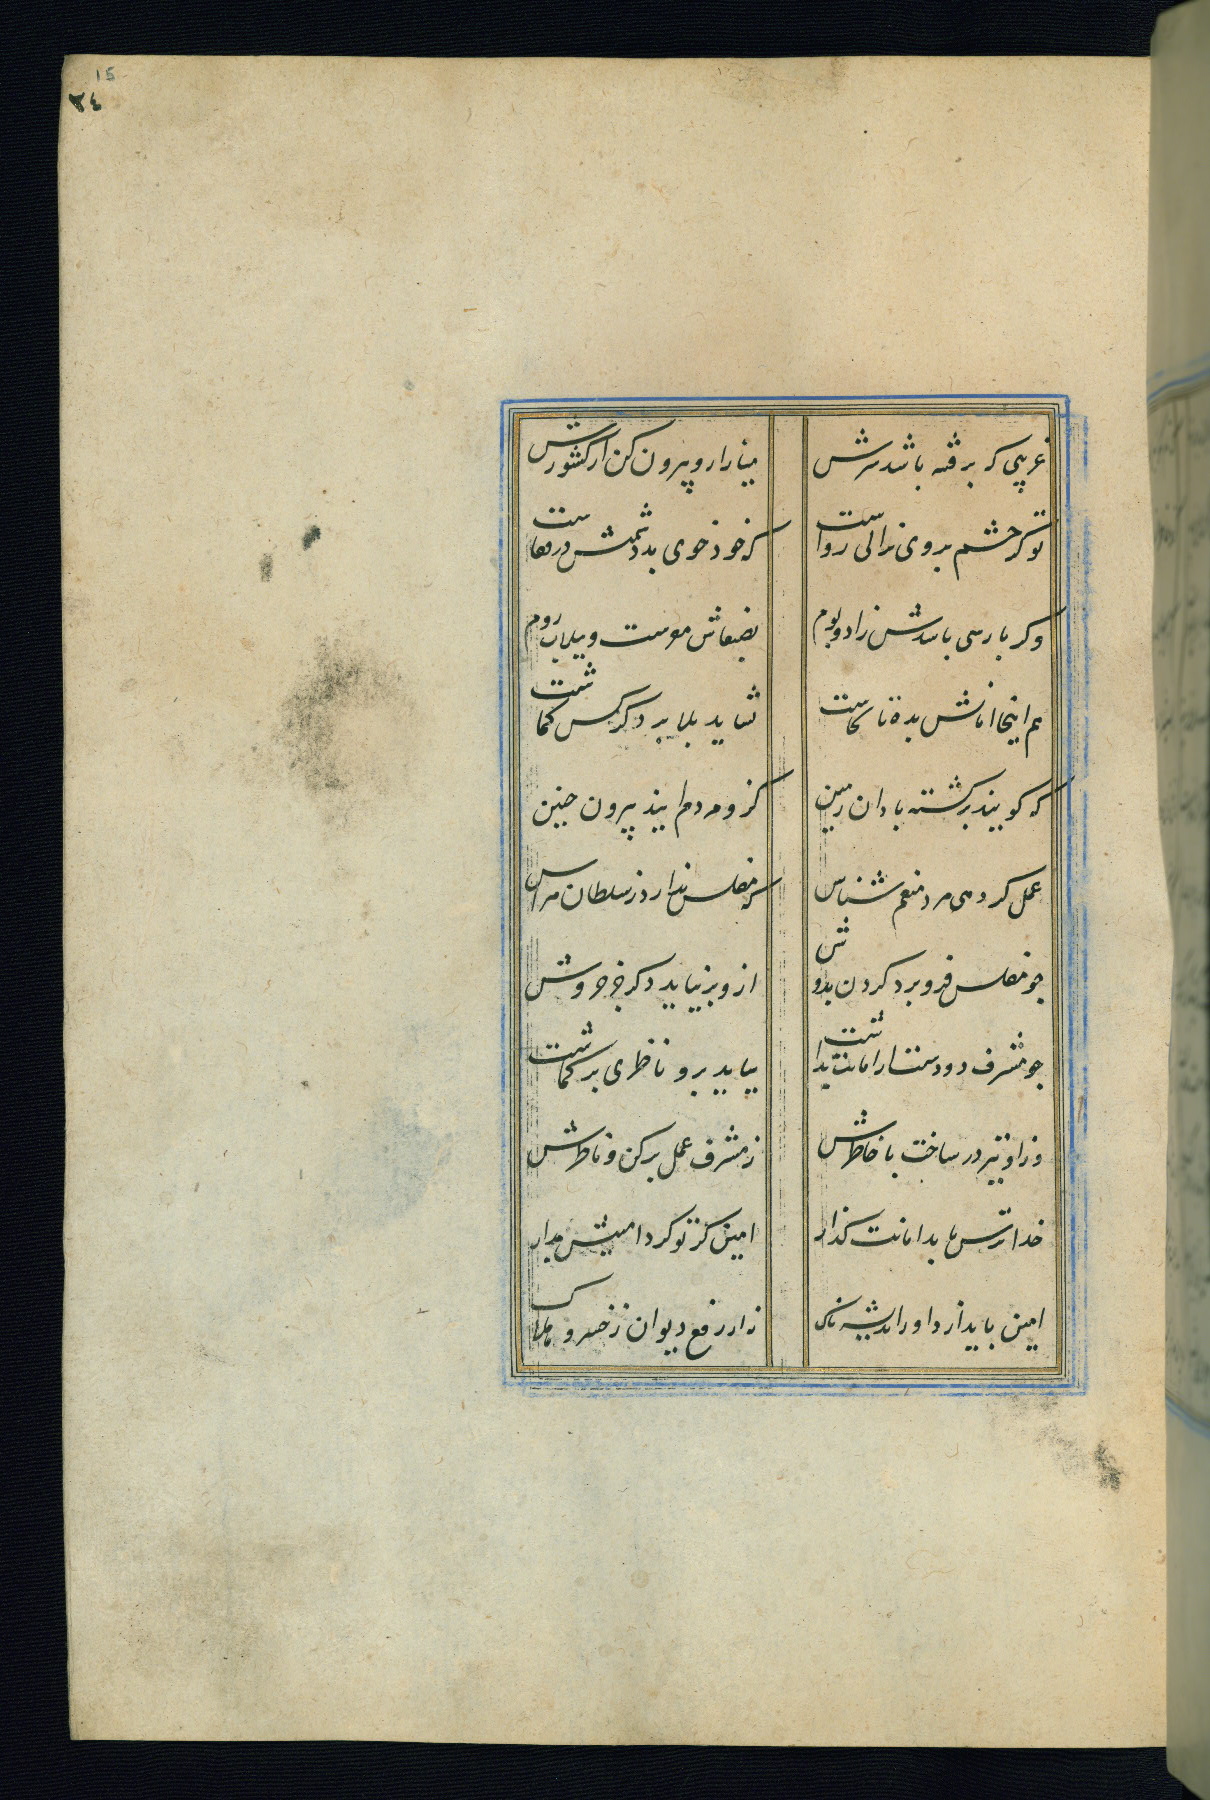 15
٢٤
غریبی که پرفتنه باشد سرش
میازار و بیرون کن از کشورش
تو کر خشم بروی نرانی رواست
که خود خوی بد دشمنش در قفاست
وکر بارسی باشدش زاد و بوم
بصنعاش مفرست و سقلاب و روم
هم اینجا امانش مده تا بجاست
نشاید بلا بر دکر کس کماشت
که کویند برکشته باد ان زمین
کزو مردم ایند بیرون جنین
عمل کر دهی مرد منعم شناس
که مفلس ندارد ز سلطان هراس
جو مفلس فرو برد کردن بدوش
ازو برنیاید دکر جز خروش
جو مشرف دو دست از امانت بداشت
بباید برو ناظری بر کماشت
ور او نیز در ساخت با خاطرش
ز مشرف عمل بر کن و ناظرش
خدا ترس باید امانت کذار
امین کز تو ترسد امینش مدار
امین باید از داور اندیشه ناک
نه از رفع دیوان و زجر و هلاک